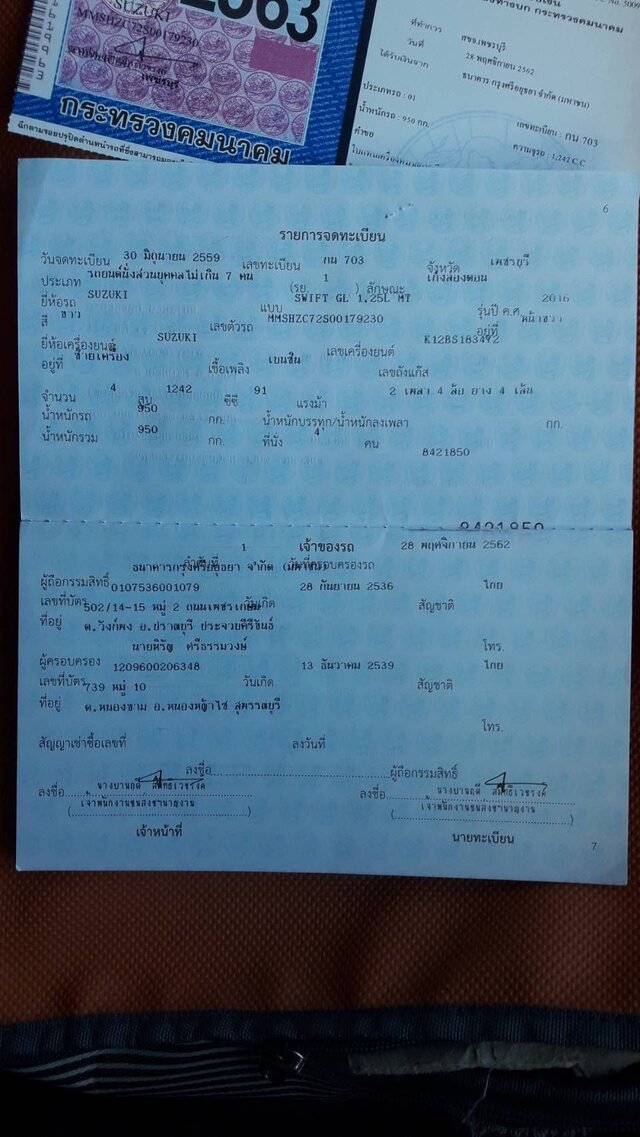 2563
SUZUKI
MMSHZC72S00179230
เพชรบุรี
กระทรวงคมนาคม
ที่ทำการ สขจ.เพชรบุรี
วันที่ 28 พฤศจิกายน 2562
ได้รับเงินจาก ธนาคาร กรุงศรีอยุธยา จำกัด (มหาชน)
ประเภทรถ : 01
น้ำหนักรถ : 950 กก. เลขทะเบียน : กน 703
คำขอ ความจุรถ : 1,242 C.C
6
รายการจดทะเบียน
วันจดทะเบียน 30 มิถุนายน 2559 เลขทะเบียน กน 703 จังหวัด เพชรบุรี
ประเภท รถยนต์นั่งส่วนบุคคลไม่เกิน 7 คน (รย. 1 ) ลักษณะ เก๋งสองตอน
ยี่ห้อรถ SUZUKI แบบ SWIFT GL 1.25L MT รุ่นปี ค.ศ. 2016
สี ขาว เลขตัวรถ MMSHZC72S00179230 อยู่ที่ หน้าขวา
ยี่ห้อเครื่องยนต์ SUZUKI เลขเครื่องยนต์ K12BS183492
อยู่ที่ ซ้ายเครื่อง เชื้อเพลิง เบนซิน เลขถังแก๊ส
จำนวน 4 สูบ 1242 ซีซี 91 แรงม้า 2 เพลา 4 ล้อ ยาง 4 เส้น
น้ำหนักรถ 950 กก. น้ำหนักบรรทุก/น้ำหนักลงเพลา กก.
น้ำหนักรวม 950 กก. ที่นั่ง 4 คน
8421850
8421850
เจ้าของรถ
ลำดับที่ 1 วันที่ครอบครองรถ 28 พฤศจิกายน 2562
ผู้ถือกรรมสิทธิ์ ธนาคารกรุงศรีอยุธยา จำกัด (มหาชน)
เลขที่บัตร 0107536001079 วันเกิด 28 กันยายน 2536 สัญชาติ ไทย
ที่อยู่ 502/14-15 หมู่ 2 ถนนเพชรเกษม
ต.วังก์พง อ.ปราณบุรี ประจวบคีรีขันธ์ โทร.
ผู้ครอบครอง นายหิรัญ ศรีธรามวงษ์
เลขที่บัตร 1209600206348 วันเกิด 13 ธันวาคม 2539 สัญชาติ ไทย
ที่อยู่ 739 หมู่ 10
ต.หนองขาม อ.หนองหญ้าไซ สุพรรณบุรี โทร.
สัญญาเช่าซื้อเลขที่ ลงวันที่
ลงชื่อ ผู้ถือกรรมสิทธิ์
ลงชื่อ ลงชื่อ
( เจ้าพนักงานขนส่งชำนาญงาน ) ( เจ้าพนักงานขนส่งชำนาญงาน )
เจ้าหน้าที่ นายทะเบียน
7